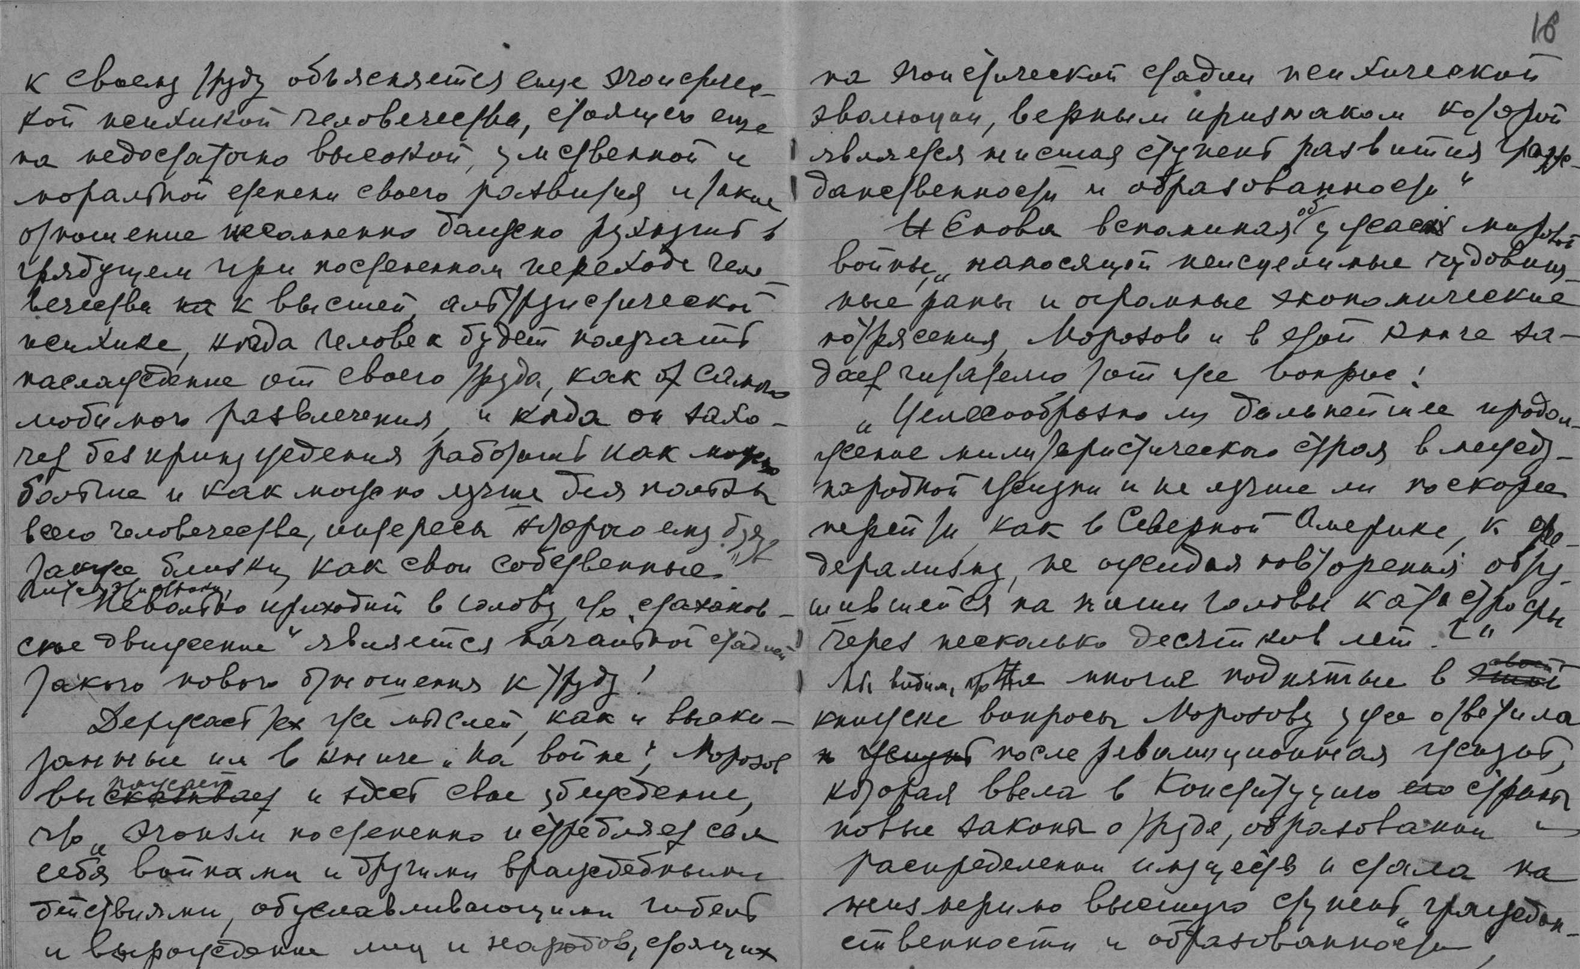 к своему труду объясняется еще эгоистичес-
кой психикой человечества, стоящего еще
на недостаточно высокой, умственной и
моральной степени своего развития и такие
отношение несомненно должно рухнуть в
грядущем при постепенном переходе чело-
вечества на к высшей, альтруистической
психике, когда человек будет получать
наслаждение от своего труда, как от самого
любимого развлечения, и когда он захо-
чет без принуждения работать как можно
больше и как можно лучше для пользы
всего человечества, интересы которого ему будут
также близки, как свои собственные.
Невольно приходит в голову, что „стаханов-
ское движение“ является начальной стадией
такого нового отношения к труду!
Держась тех же мыслей, как и выска-
занные им в книге „На войне“, Морозов
высказывает и здесь свое убеждение,
что „эгоизм постепенно истребляет сам
себя войнами и другими враждебными
действиями, обуславливающими гибель
и вырождение лиц и народов, стоящих
18
на эгоистической стадии психической
эволюции, верным признаком которой
является низшая ступень развития граж-
данственности и образованности“
И снова вспоминая об ужасах мировой
войны, „наносящей неисцелимые чудовищ-
ные раны и огромные экономические
потрясения, Морозов и в этой книге за-
дает читателю тот же вопрос:
„Целесообразно ли дальнейшее продол-
жение милитаристического строя в между-
народной жизни и не лучше ли поскорее
перейти, как в Северной Америке, к фе-
дерализму, не ожидая повторения обру-
шившейся на наши головы катастрофы
через несколько десятков лет?“
Мы видим, что на многие поднятые в своей
книжке вопросы Морозову уже ответила
и жизнь после революционная жизнь,
которая ввела в Конституцию его страны
новые законы о труде, образовании и
распределении имуществ и стала на
неизмеримо высшую ступень „граждан-
ственности и образованности“,